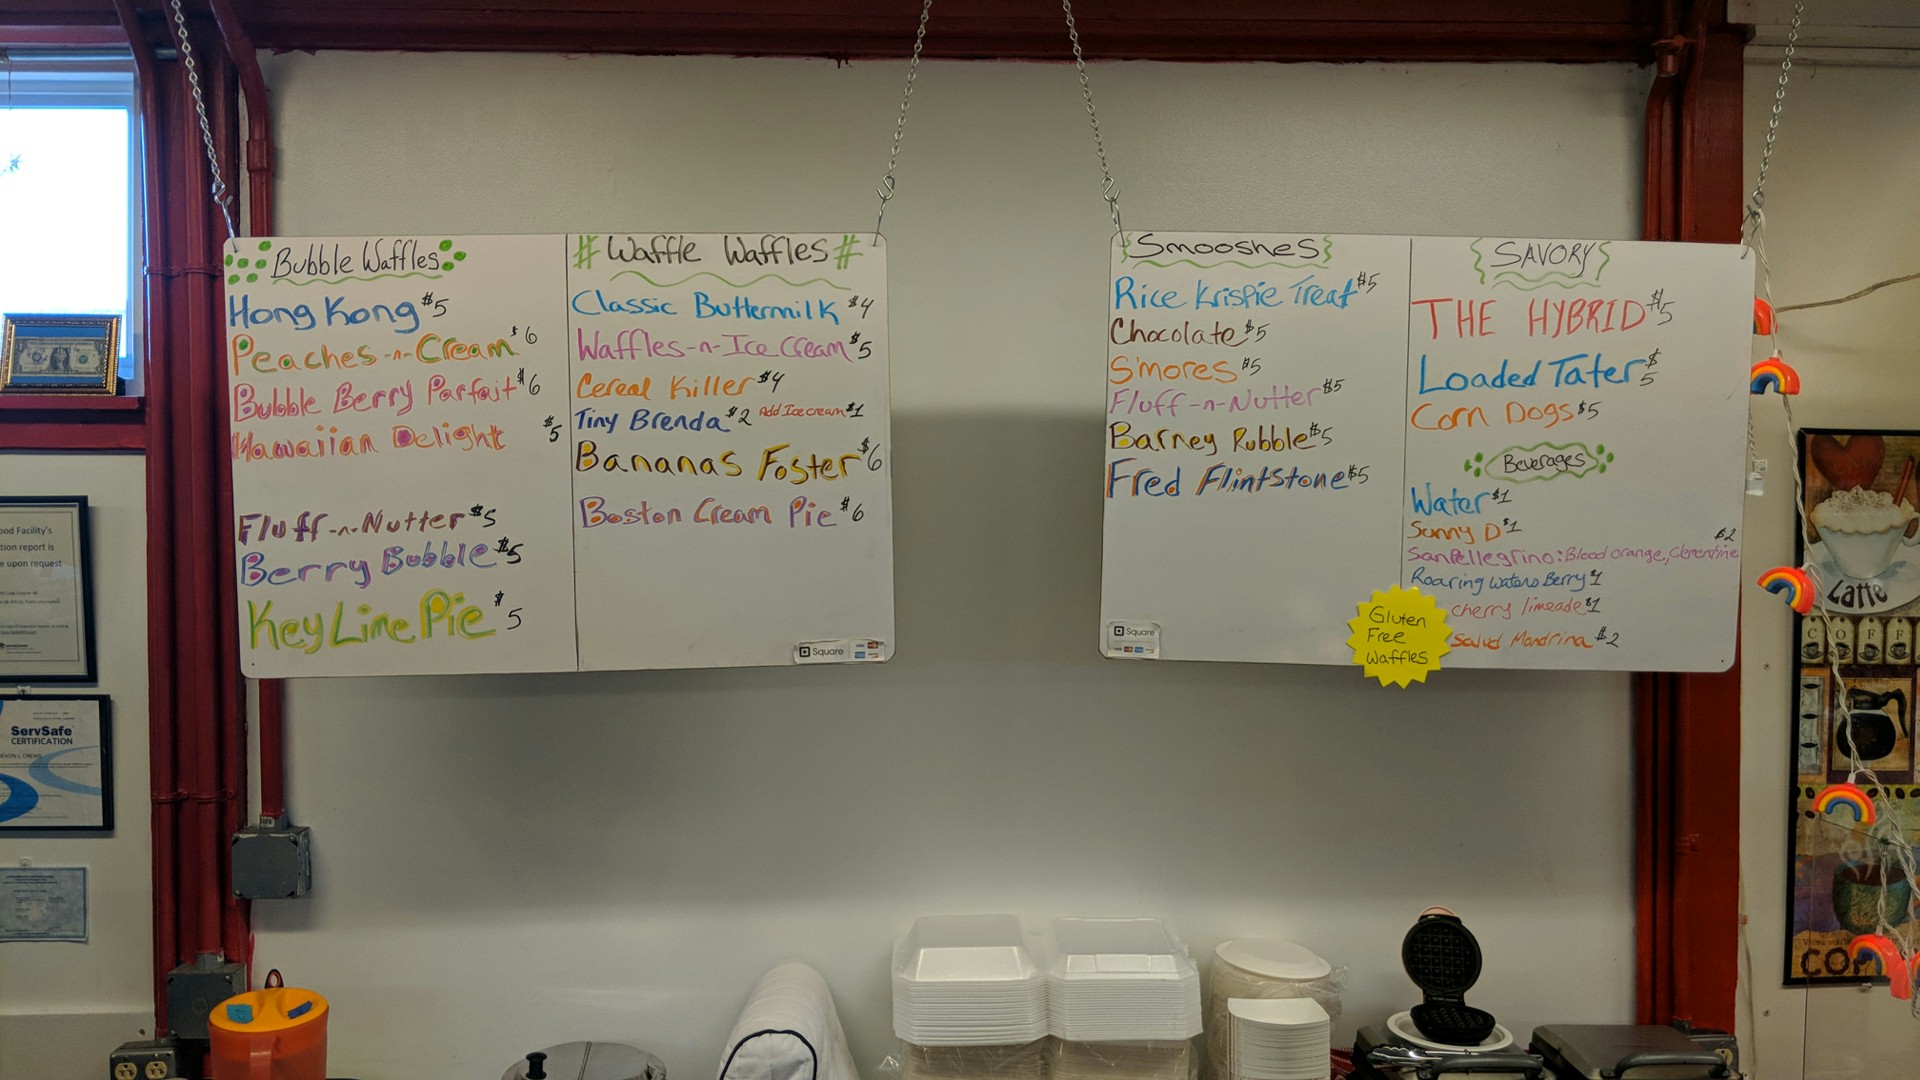 Bubble Waffles
Hong Kong $5
Peaches -n- Cream $6
Bubble Berry Parfait $6
Hawaiian Delight $5
Fluff -n- Nutter $5
Berry Bubble $5
Key Lime Pie $5
# Waffle Waffles #
Classic Buttermilk $4
Waffles -n- Ice Cream $5
Cereal Killer $4
Tiny Brenda $2 Add Ice cream $1
Bananas Foster $6
Boston Cream Pie $6
Square
{Smooshes}
Rice Krispie Treat $5
Chocolate $5
S'mores $5
Fluff -n- Nutter $5
Barney Rubble $5
Fred Flintstone $5
Square
{SAVORY}
THE HYBRID $5
Loaded Tater $5
Corn Dogs $5
Beverages
Water $1
Sunny D $1
SanPellegrino: Blood orange, Clementine $2
Roaring Waters Berry $1
cherry limeade $1
Salud Mandrina $2
Gluten
Free
Waffles
ood Facility's
tion report is
e upon request
ServSafe
CERTIFICATION
EVON L CREWS
Latte
COFF